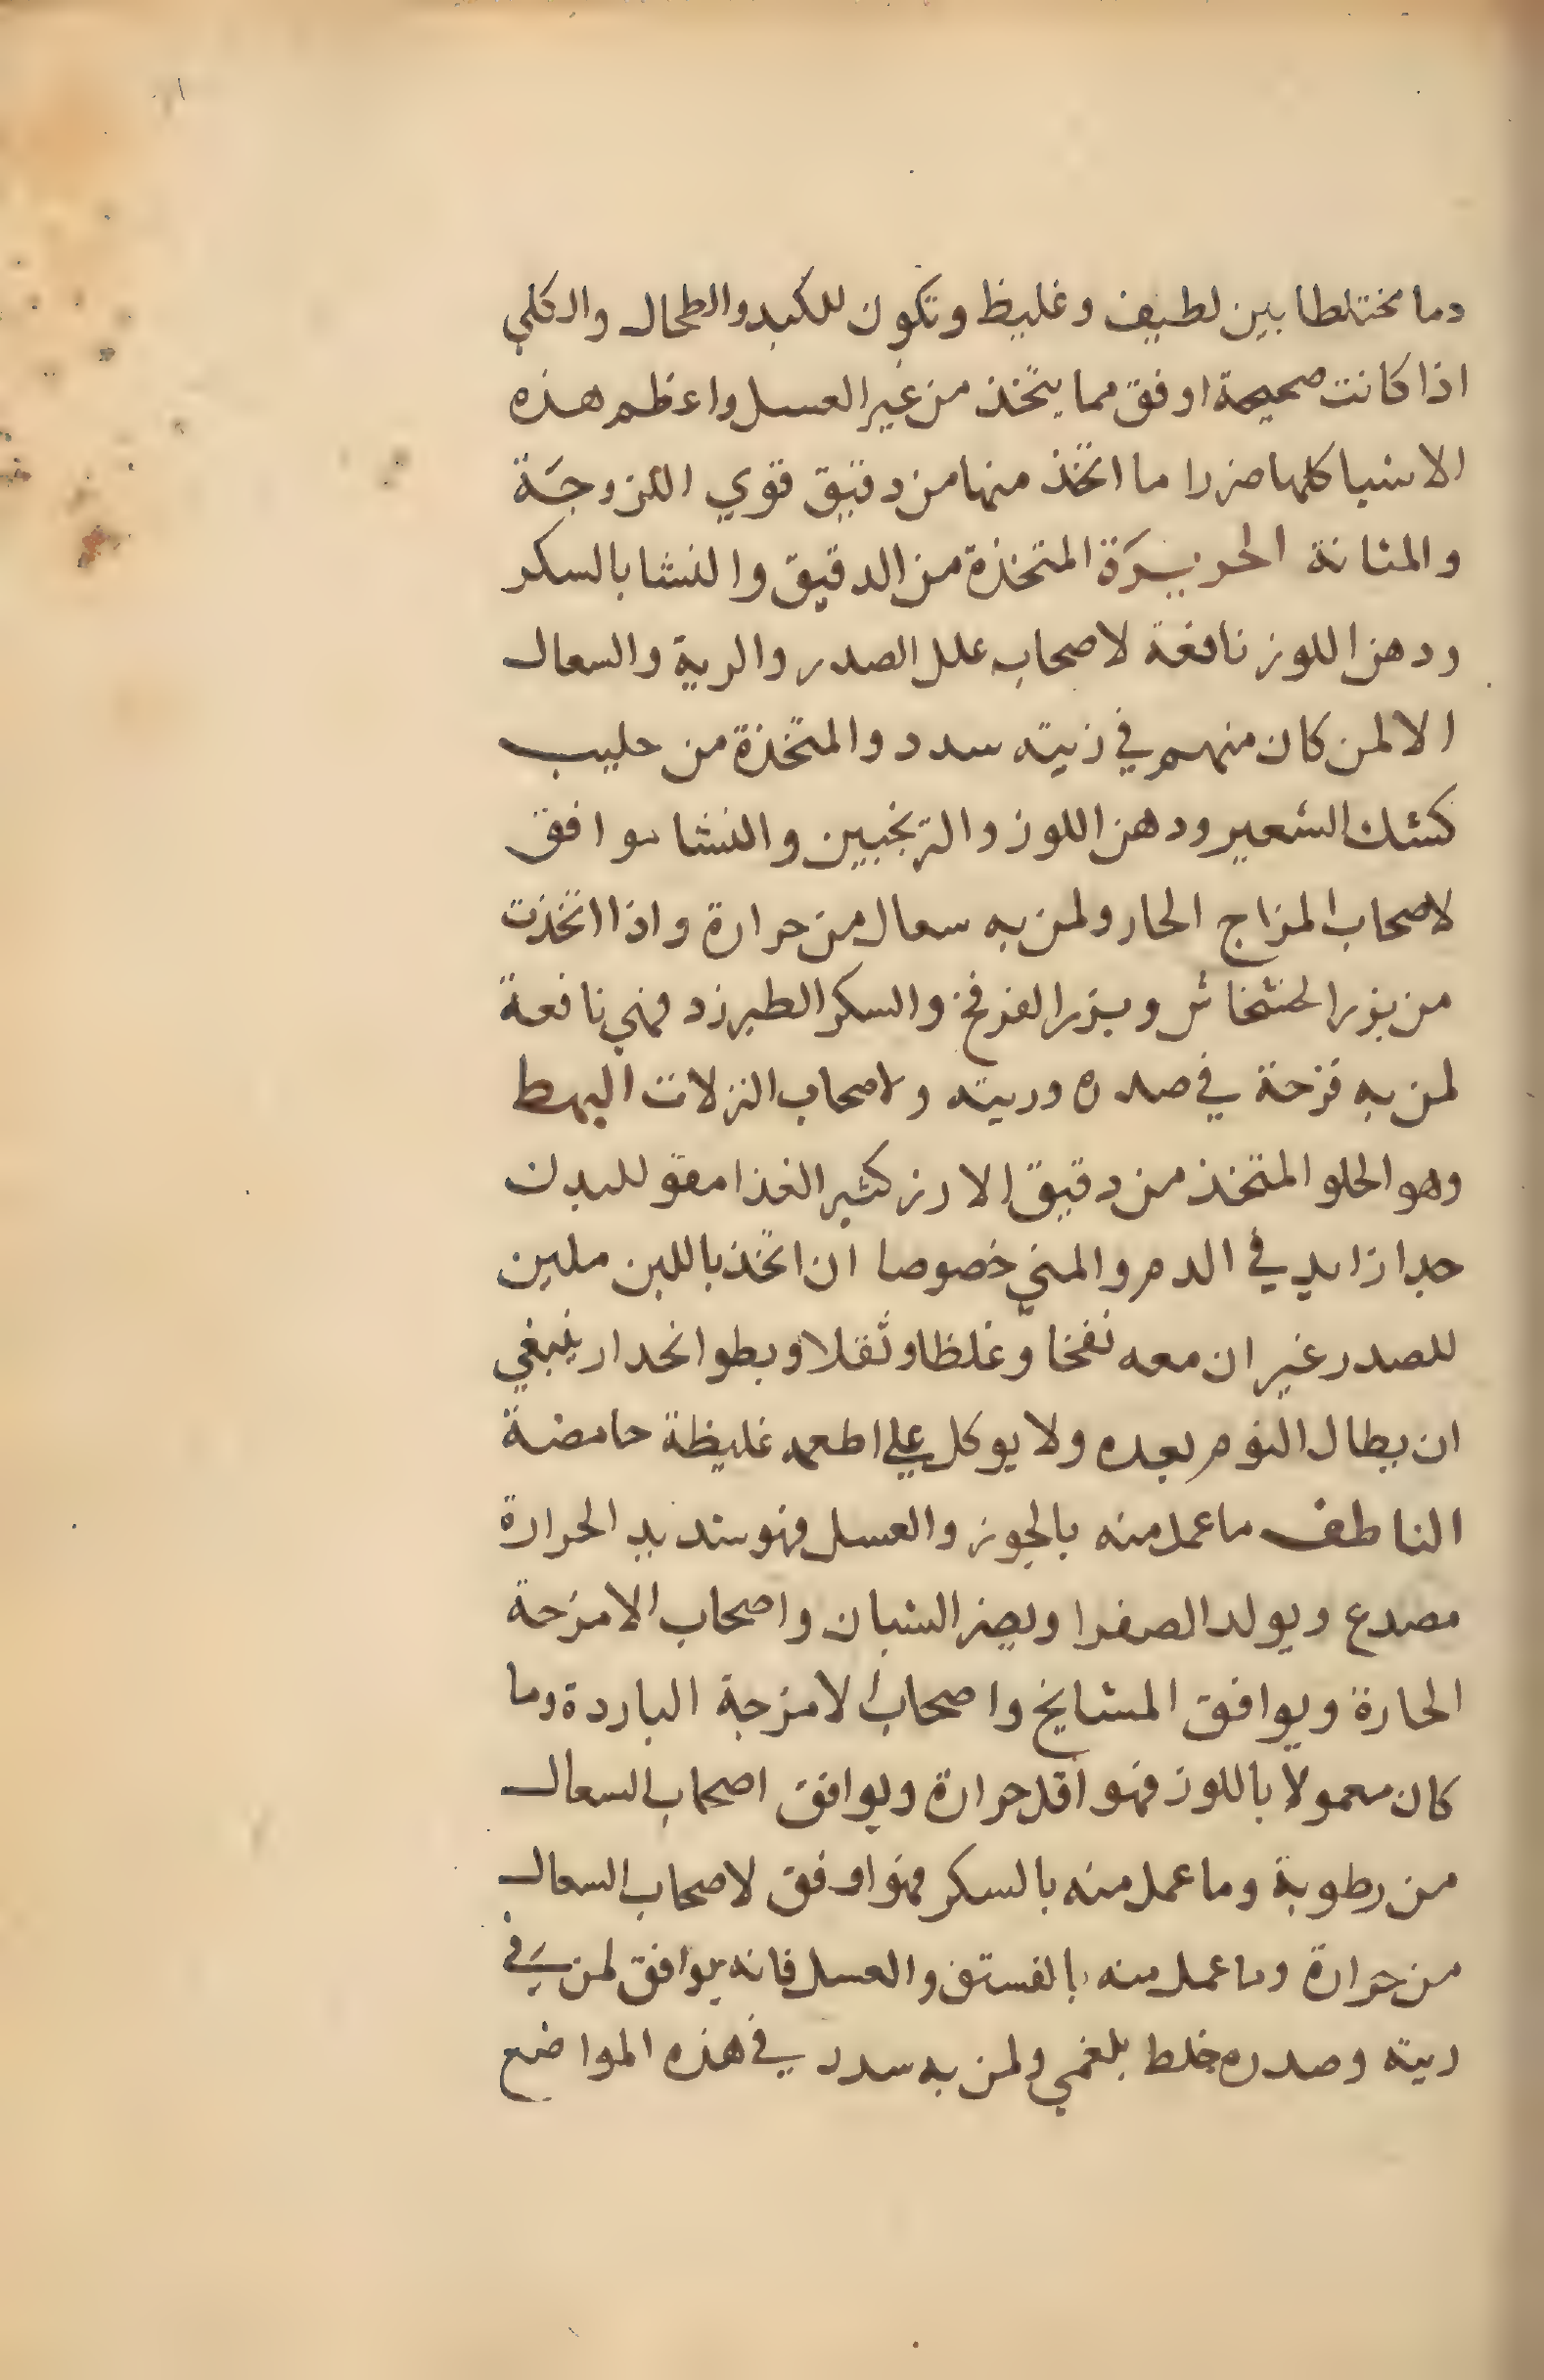 دما مختلطا بين لطيف وغليظ وتكون للكبد والطحال والكلي
اذا كانت صحيحة اوفق مما يتخذ من غير العسل واعظم هذه
الاشيا كلها ضررا ما اتخذ منها من دقيق قوي اللزوجَة
والمتانة الحريرَة المتخذة من الدقيق والنشا بالسكر
ودهن اللوز نافعة لاصحاب علل الصدر والرية والسعال
الا لمن كان منهم في زيته سدد والمتخذة من حليب
كشك الشعير ودهن اللوز والترنجبين والنشا موافق
لاصحاب المزاج الحار ولمن به سعال من حرارة واذا اتخذت
من بزر الخشخاش وبزر الفرفخ والسكر الطبرزد فهي نافعة
لمن به قرحة في صدره وريته ولاصحاب النزلات البهط
وهو الحلو المتخذ من دقيق الارز كثير الغذا مقو للبدن
جدا زايد في الدم والمني خصوصا ان اتخذ باللبن ملين
للصدر غير ان معه نفخا وغلظا وثقلا وبطو انحدار ينبغي
ان يطال النوم بعده ولا يوكل علي اطعمه غليظة حامضة
الناطف ما عمل منه بالجوز والعسل فهو شديد الحرارة
مصدع ويولد الصفرا ويضر الشبان واصحاب الامزجة
الحارة ويوافق المشايخ واصحاب الامزجة الباردة وما
كان معمولا باللوز فهو اقل حرارة ويوافق اصحاب السعال
من رطوبة وما عمل منه بالسكر فهو اوفق لاصحاب السعال
من حرارة وما عمل منه بالفستق والعسل فانه يوافق لمن في
ريته وصدره خلط بلغمي ولمن به سدد في هذه المواضع